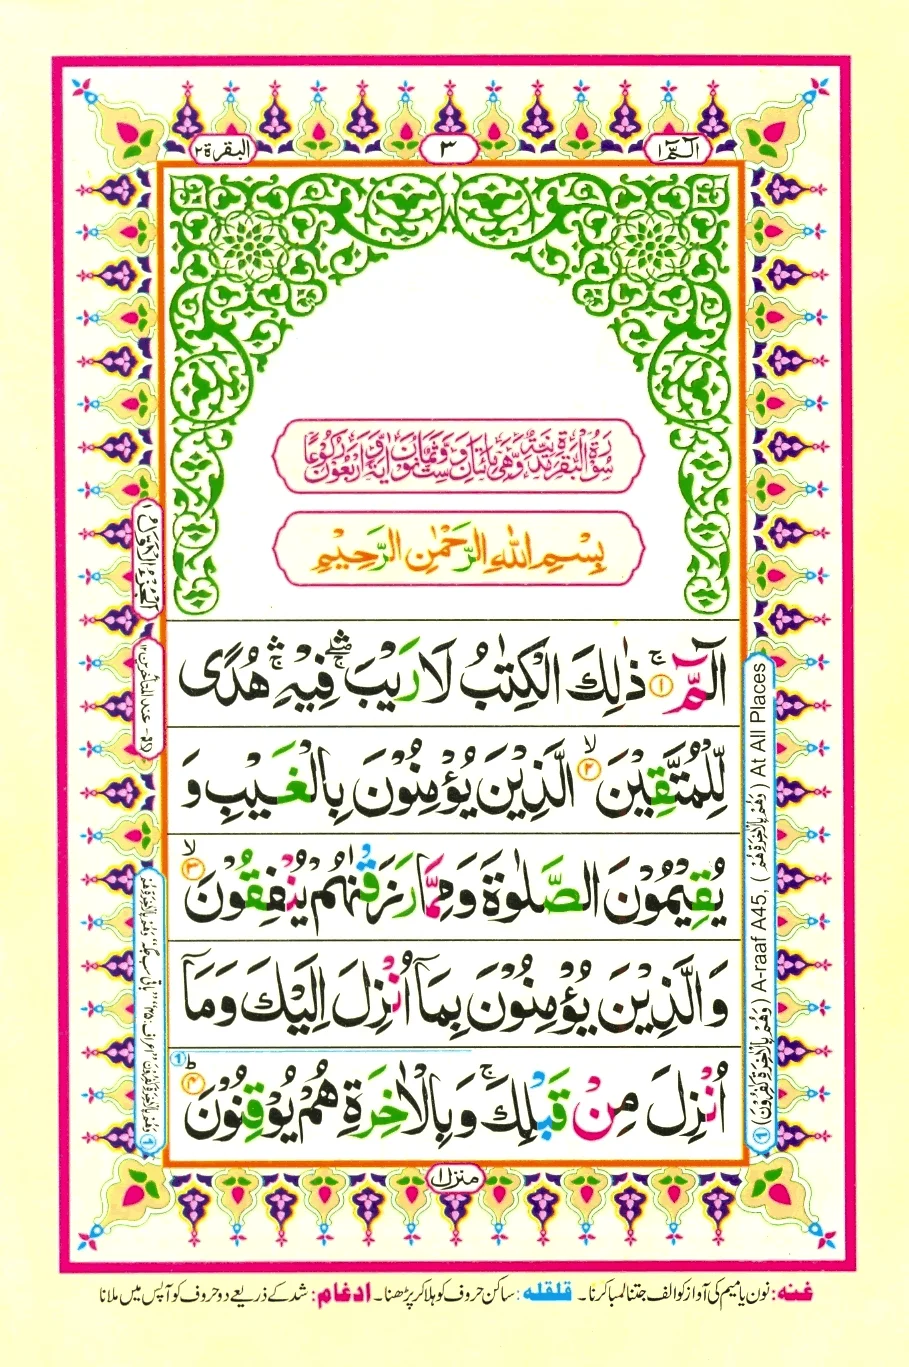 الٓمّٓ ۱
۳
البقرة ۲
سُوْرَةُ الْبَقَرَةِ مَدَنِيَّةٌ وَّهِيَ مِائَتَانِ وَسِتٌّ وَّثَمَانُوْنَ اٰيَةً وَّاَرْبَعُوْنَ رُكُوْعًا
بِسْمِ اللّٰهِ الرَّحْمٰنِ الرَّحِيْمِ
الٓمّٓ ۚ﴿۱﴾ ذٰلِكَ الْكِتٰبُ لَا رَيْبَ ۛۖۚ فِيْهِ ۛۚ هُدًى
لِّلْمُتَّقِيْنَ ۙ﴿۲﴾ الَّذِيْنَ يُؤْمِنُوْنَ بِالْغَيْبِ وَ
يُقِيْمُوْنَ الصَّلٰوةَ وَمِمَّا رَزَقْنٰهُمْ يُنْفِقُوْنَ ۙ﴿۳﴾
وَالَّذِيْنَ يُؤْمِنُوْنَ بِمَآ اُنْزِلَ اِلَيْكَ وَمَآ
اُنْزِلَ مِنْ قَبْلِكَ ۚ وَبِالْاٰخِرَةِ هُمْ يُوْقِنُوْنَ ؕ﴿۴﴾ ①
① (وَهُمْ بِالْاٰخِرَةِ كٰفِرُوْنَ) A-raaf A45, (وَهُمْ بِالْاٰخِرَةِ هُمْ) At All Places
الجزء الاول ۱
عند المتأخرين ۱۲
منزل ۱
غنه: نون یا میم کی آواز کو الف جتنا لمبا کرنا۔ قلقله: ساکن حروف کو ہلا کر پڑھنا۔ ادغام: شد کے ذریعے دو حروف کو آپس میں ملانا